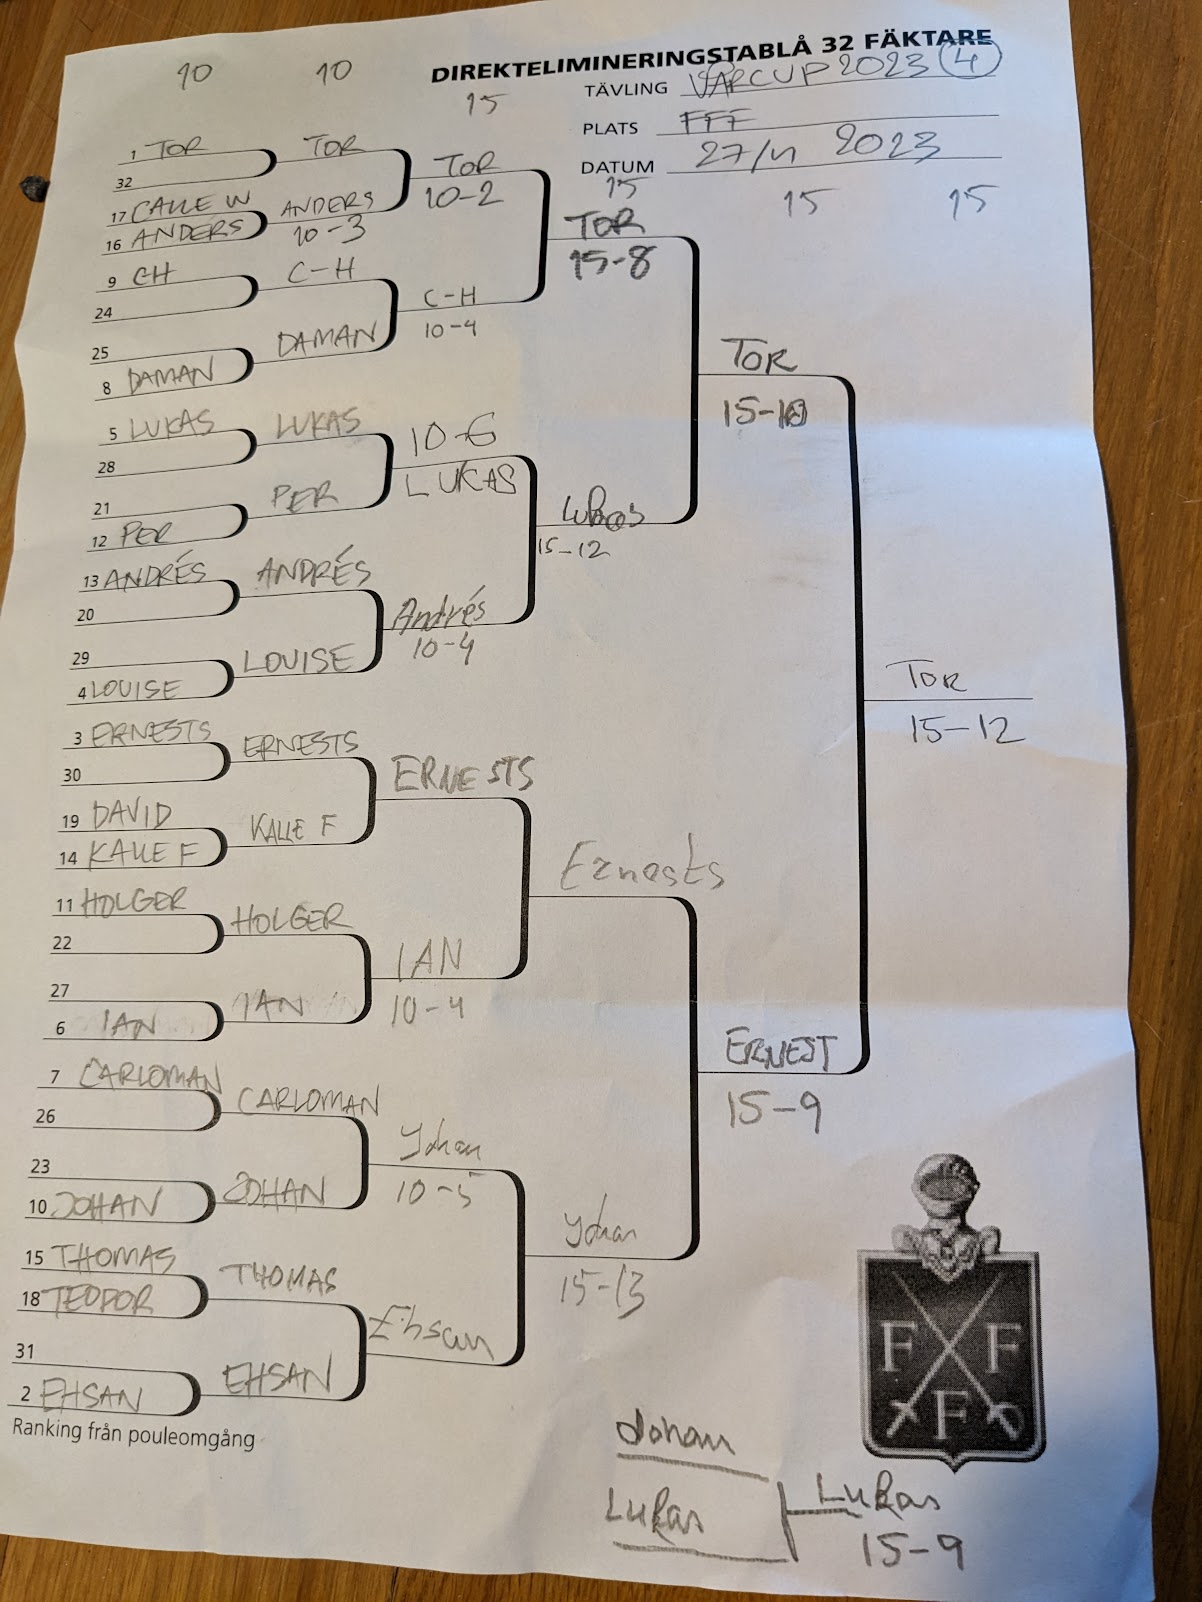 DIREKTELIMINERINGSTABLÅ 32 FÄKTARE
TÄVLING VÅRCUP 2023 4
PLATS FFF
DATUM 27/4 2023
10 10 15 15 15 15
1 TOR
32
17 CALLE W
16 ANDERS
9 CH
24
25
8 DAMAN
5 LUKAS
28
21
12 PER
13 ANDRÉS
20
29
4 LOUISE
3 ERNESTS
30
19 DAVID
14 KALLE F
11 HOLGER
22
27
6 IAN
7 CARLOMAN
26
23
10 JOHAN
15 THOMAS
18 TEODOR
31
2 EHSAN
Ranking från pouleomgång
TOR
ANDERS
10-3
C-H
DAMAN
LUKAS
PER
ANDRÉS
LOUISE
ERNESTS
KALLE F
HOLGER
IAN
CARLOMAN
JOHAN
THOMAS
EHSAN
TOR
10-2
C-H
10-4
10-6
LUKAS
Andrés
10-4
ERNESTS
IAN
10-4
Johan
10-5
Ehsan
TOR
15-8
Lukas
15-12
Ernests
Johan
15-13
TOR
15-10
ERNEST
15-9
TOR
15-12
Johan
Lukas
Lukas
15-9
F F
F